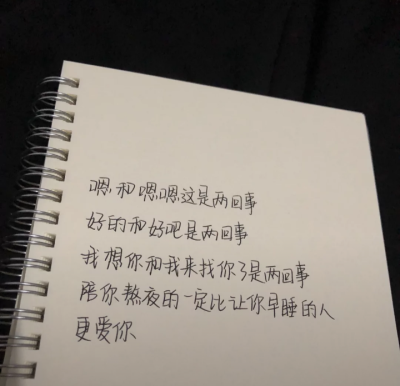 嗯和嗯嗯这是两回事
好的和好吧是两回事
我想你和我来找你了是两回事
陪你熬夜的一定比让你早睡的人
更爱你